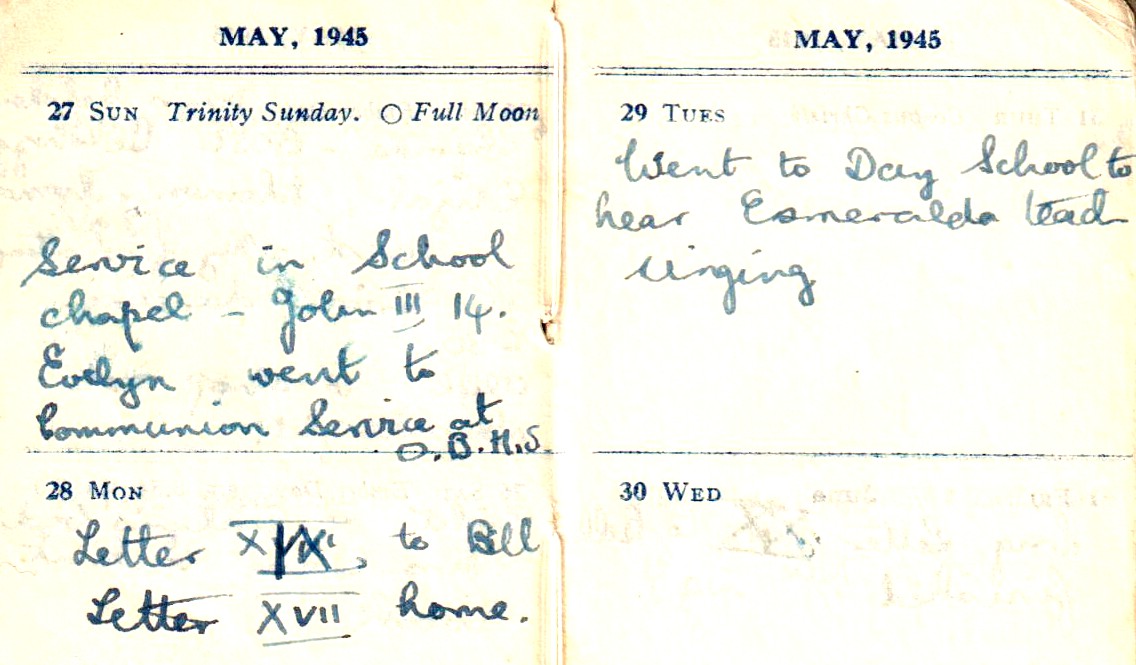 MAY, 1945
27 SUN Trinity Sunday. ○ Full Moon
Service in School
chapel - John III 14.
Evelyn went to
Communion Service at
O.B.H.S.
28 MON
Letter to Bill
Letter XVII home.
MAY, 1945
29 TUES
Went to Day School to
hear Esmeralda lead
singing
30 WED